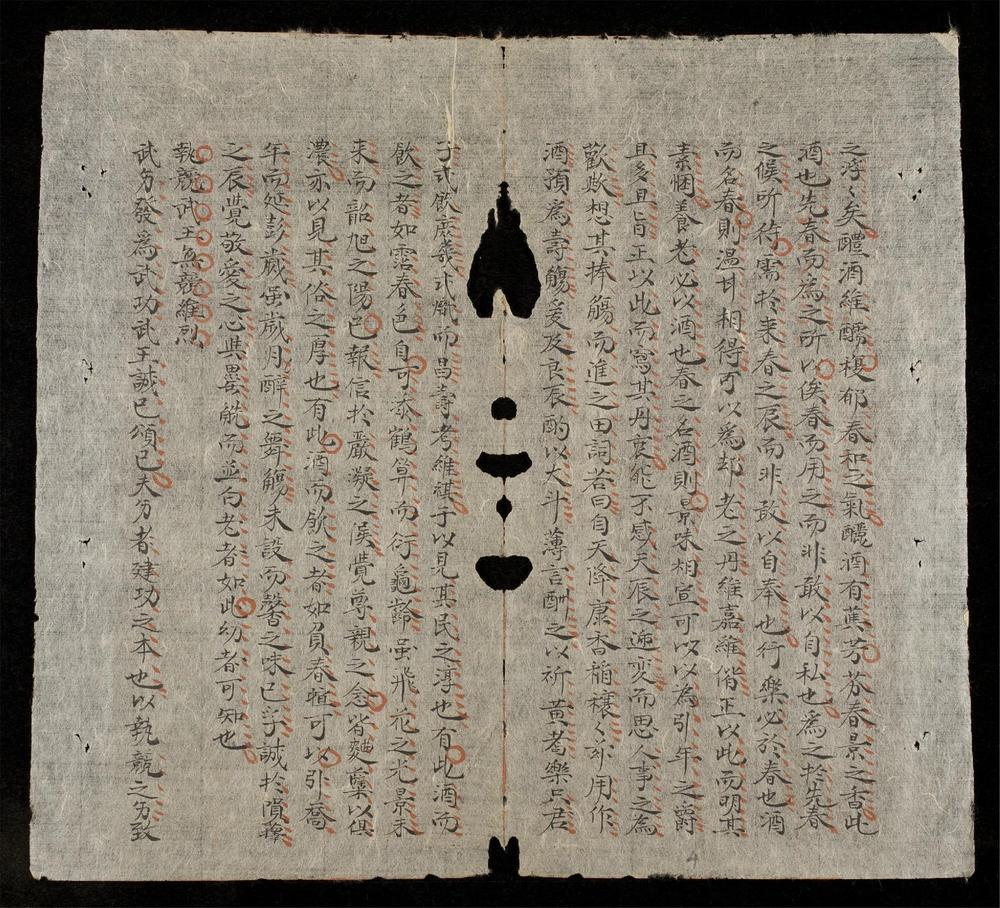 之浮〻矣醴酒維醹複郁春和之氣醲酒有蕉芳芬春景之香此
酒也先春而為之所以俟春而用之而非敢以自私也為之於先春
之候所待需於来春之辰而非敢以自奉也行樂必於春也酒
而名春則温甘相得可以為却老之丹維嘉維偕正以此而明其
素悃養老必以酒也春之名酒則景味相宣可以以為引年之爵
且多且旨正以此而寫其丹衷能不感天辰之遞変而思人事之為
歡歟想其捧觴而進之田詞若曰自天降康香稲穰〻茲用作
酒預為壽觴爰及良辰酌以大斗薄言酬之以祈黃耇樂只君
子式飲庶幾式熾而昌壽考維祺于以見其民之淳也有此酒而
飲之者如霑春色自可添鶴筭而衍龜齡虽飛花之光景未
来而韶旭之陽已報信於嚴凝之候覺尊親之念省麯蘖以俱
濃亦以見其俗之厚也有此酒而飲之者如負春暄可以引喬
年而延彭歲虽歲月酧之舞觴未設而馨之味已孚誠於隕蘀
之辰覺敬愛之心與罍觥而並白老者如此幼者可知也
執競武王無競維烈
武功發為武功武王誠已頌已夫功者建功之本也以執競之功致